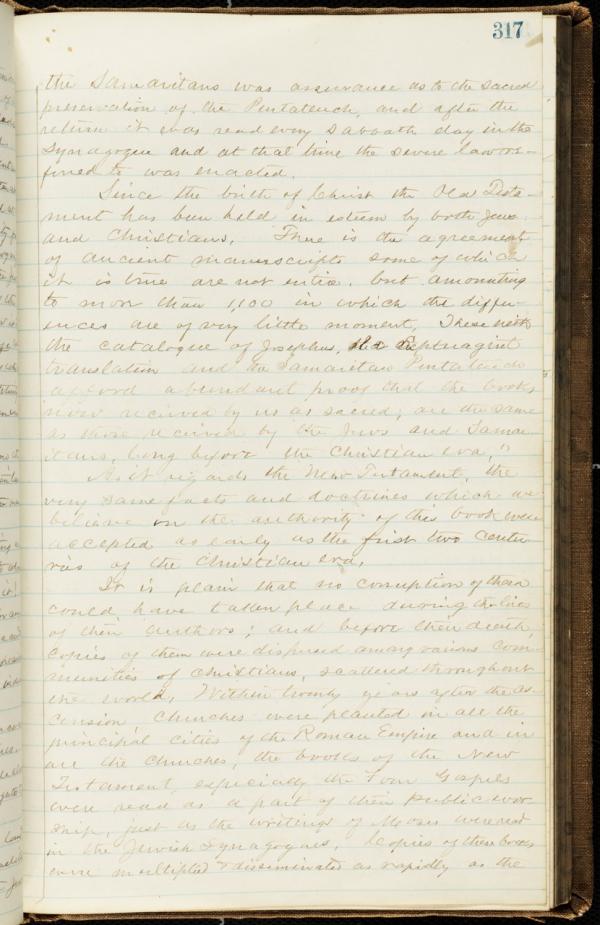 317
the Samaritans was assurance as to the sacred
preservation of the Pentateuch, and after the
return it was read every Sabbath day in the
Synagogue and at that time the severe law re-
fered to was enacted.
Since the birth of Christ the Old Testa-
ment has been held in esteem by both Jews
and Christians. There is the agreement
of ancient manuscripts some of which
it is true are not entire, but amounting
to more than 1,100 in which the differ-
ences are of very little moment, These with
the catalogue of Josephus, the Septuagint
translation and the Samaritan Pentateuch
afford abundant proof that the books
now received by us as sacred, are the same
as those received by the Jews and Samar-
itans, long before the Christian era,"
As it regards the New Testament, the
very same facts and doctrines which we
believe on the authority of this book were
accepted as early as the first two centu-
ries of the Christian era,
It is plain that no corruption of them
could have taken place during the lives
of their authors; and before their death,
copies of them were dispersed among various com-
munities of Christians, scattered throughout
the world, Within twenty years after the as-
cension churches were planted in all the
principal cities of the Roman Empire and in
all the churches, the books of the New
Testament, especially the Four Gospels
were read as a part of their public wor-
ship, just as the writings of Moses were read
in the Jewish Synagogues, Copies of these books
were multiplied & disseminated as rapidly as the